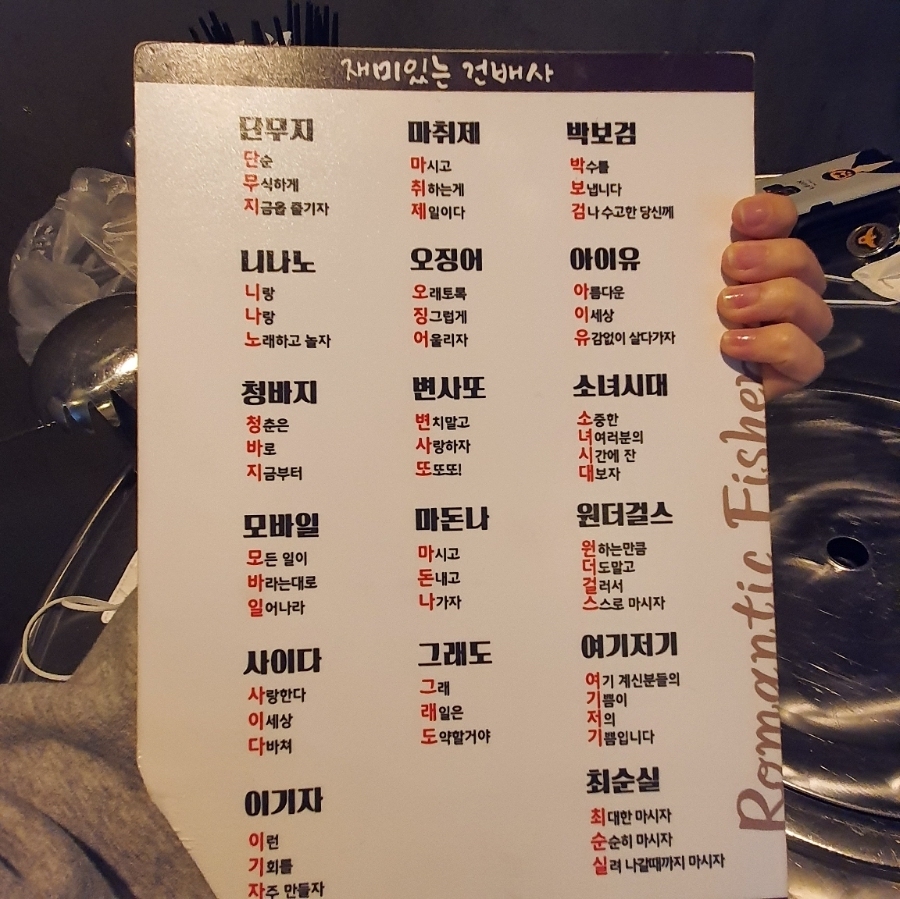 재미있는 건배사
단무지
단순
무식하게
지금을 즐기자
니나노
니랑
나랑
노래하고 놀자
청바지
청춘은
바로
지금부터
모바일
모든 일이
바라는대로
일어나라
사이다
사랑한다
이세상
다바쳐
이기자
이런
기회를
자주 만들자
마취제
마시고
취하는게
제일이다
오징어
오래토록
징그럽게
어울리자
변사또
변치말고
사랑하자
또또또!
마돈나
마시고
돈내고
나가자
그래도
그래
래일은
도약할거야
박보검
박수를
보냅니다
검나 수고한 당신께
아이유
아름다운
이세상
유감없이 살다가자
소녀시대
소중한
녀여러분의
시간에 잔
대보자
원더걸스
원하는만큼
더도말고
걸러서
스스로 마시자
여기저기
여기 계신분들의
기쁨이
저의
기쁨입니다
최순실
최대한 마시자
순순히 마시자
실려 나갈때까지 마시자
Romantic Fisher